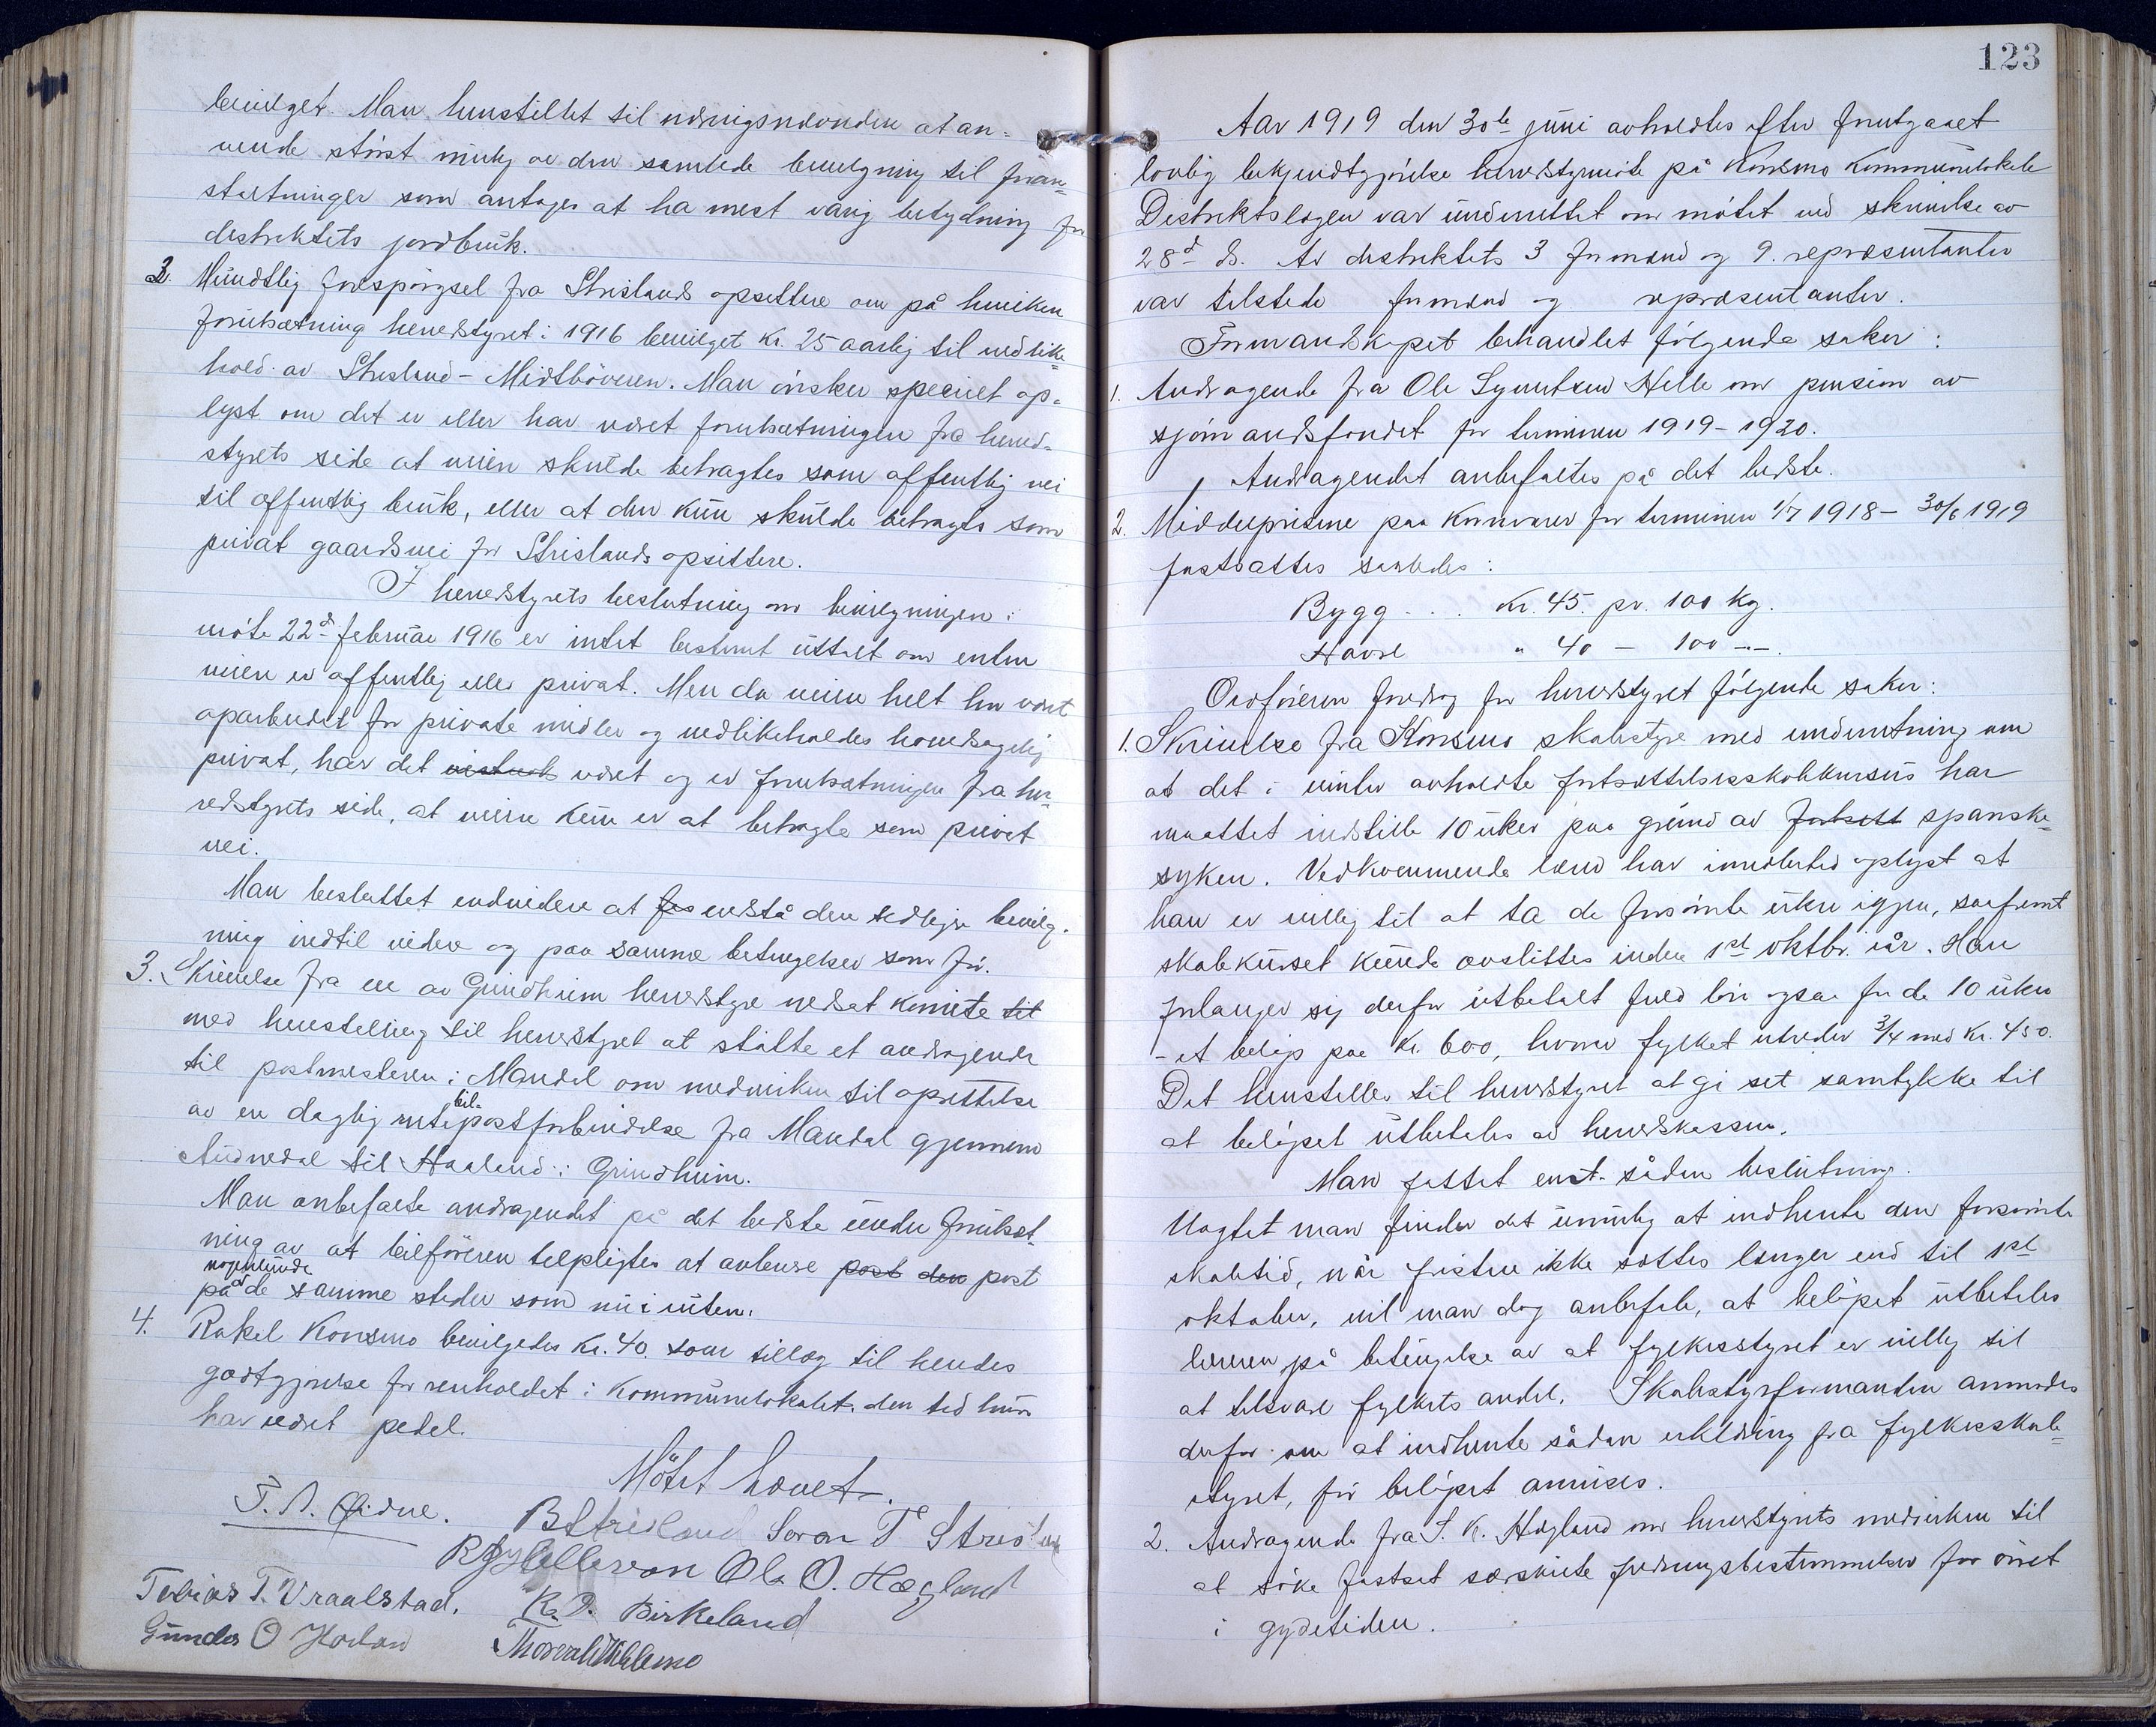 bevilget. Man henstillet til nævnden at an-
vende størst mulig av den samlede bevilgning til foran-
staltninger som antages at ha mest varig betydning for
distriktets jordbruk.
2. Mundtlig forespørgsel fra Strislands opsittere om på hvilken
forutsætning herredstyret i 1916 bevilget kr. 25 aarlig til vedlike-
hold av Strisland - Midtbøveien. Man ønsker specielt op-
lyst om det er eller har været forutsætningen fra herred-
styrets side at veien skulde betragtes som offentlig vei
til offentlig bruk, eller at den kun skulde betragtes som
privat gaardsvei for Strislands opsittere.
I herredstyrets beslutning om bevilgningen i
møte 22d februar 1916 er intet bestemt uttalt om enten
veien er offentlig eller privat. Men da veien helt har vært
oparbeidet for private midler og vedlikeholdes hovedsagelig
privat, har det været og er forutsætningen fra her-
redstyrets side, at veien kun er at betragte som privat
vei.
Man besluttet endvidere at la enestå den tidligere bevilg-
ning indtil videre og paa samme betingelser som før.
3. Skrivelse fra en av Grindheim herredstyre nedsat komite
med henstilling til herredstyret at støtte et andragende
til postmesteren i Mandal om medvirken til oprettelse
av en daglig bil-postforbindelse fra Mandal gjennem
Audnedal til Haaland i Grindheim.
Man anbefalte andragendet på det bedste under forutsæt-
ning av at bilføreren tilpligtes at avlevere post den post
nogenlunde
på de samme steder som nu i ruten.
4. Rakel Konsmo bevilgedes kr. 40. som tillæg til hendes
godtgjørelse for renholdet i kommunelokalet den tid hun
har været pedel.
Møtet hævet.
T. A. Øidne. B Strisland Søren T Strisland
Ole O. Høgland
Tobias T. Vraalstad. K. O. Birkeland
Gunder O
123
Aar 1919 den 30te juni avholdtes efter forutgaaet
lovlig bekjendtgjørelse herredstyremøte på Konsmo Kommunelokale
Distriktslægen var underrettet om møtet ved skrivelse av
28d ds. Av distriktets 3 formænd og 9. repræsentanter
var tilstede formænd og repræsentanter.
Formandskapet behandlet følgende saker:
1. Andragende fra Ole Syvertsen Helle om pension av
sjømandsfondet for terminen 1919-1920.
Andragendet anbefaltes på det bedste.
2. Middelprisene paa kornvarer for terminen 1/7 1918 - 30/6 1919
fastsattes saaledes:
Bygg ... kr. 45. pr. 100 kg.
Havre " 40 - 100 -"-.
Ordføreren foredrog for herredstyret følgende saker:
1. Skrivelse fra Konsmo skolestyre med underretning om
at det i vinter avholdte fortsættelsesskolekursus har
maattet indstille 10 uker paa grund av fortsett spanske-
syken. Vedkommende lærer har imidlertid oplyst at
han er villig til at ta de forsømte uker igjen, saafremt
skolekurset kunde avsluttes inden 1st oktbr. iår. Han
forlanger sig derfor utbetalt fuld løn ogsaa for de 10 uker
- et beløp paa kr. 600, hvorav fylket utreder 3/4 med kr. 450.
Det henstilles til herredstyret at gi sit samtykke til
at beløpet utbetales av herredskassen.
Man fattet enst. sådan beslutning.
Uagtet man finder det umulig at indhente den forsømte
skoletid, når fristen ikke sættes længer end til 1st
oktober, vil man dog anbefale, at beløpet utbetales
læreren på betingelse av at fylkesstyret er villig til
at tilsvare fylkets andel. Skolestyreformanden anmodes
derfor om at indhente sådan erklæring fra fylkesskole-
styret, før beløpet anvises.
2. Andragende fra S. K. Høgland om herredstyrets medvirken til
at søke fastsat særskilte fredningsbestemmelser for ørret
i gydetiden.